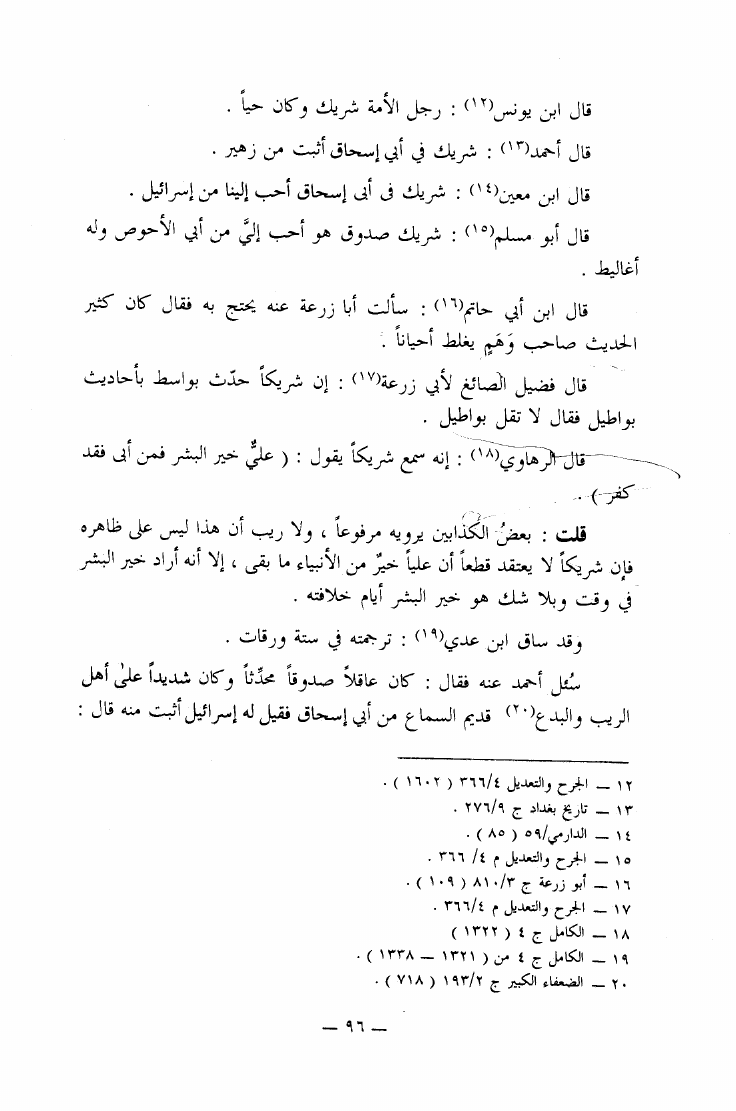 قال ابن يونس(١٢) : رجل الأمة شريك وكان حياً .
قال أحمد(١٣) : شريك في أبي إسحاق أثبت من زهير .
قال ابن معين(١٤) : شريك فى أبى إسحاق أحب إلينا من إسرائيل .
قال أبو مسلم(١٥) : شريك صدوق هو أحب إليَّ من أبي الأحوص وله
أغاليط .
قال ابن أبي حاتم(١٦) : سألت أبا زرعة عنه يحتج به فقال كان كثير
الحديث صاحب وَهَمٍ يغلط أحياناً .
قال فضيل الصائغ لأبي زرعة(١٧) : إن شريكاً حدّث بواسط بأحاديث
بواطيل فقال لا تقل بواطيل .
قال الرهاوي(١٨) : إنه سمع شريكاً يقول : ( عليٌّ خير البشر فمن أبى فقد
كفر ) .
قلت : بعضُ الكذابين يرويه مرفوعاً ، ولا ريب أن هذا ليس على ظاهره
فإن شريكاً لا يعتقد قطعاً أن علياً خيرٌ من الأنبياء ما بقى ، إلا أنه أراد خير البشر
في وقت وبلا شك هو خير البشر أيام خلافته .
وقد ساق ابن عدي(١٩) : ترجمته في ستة ورقات .
سُئل أحمد عنه فقال : كان عاقلاً صدوقاً محدِّثاً وكان شديداً على أهل
الريب والبدع(٢٠) قديم السماع من أبي إسحاق فقيل له إسرائيل أثبت منه قال :
١٢ — الجرح والتعديل ٣٦٦/٤ ( ١٦٠٢ ) .
١٣ — تاريخ بغداد ج ٢٧٦/٩ .
١٤ — الدارمي/٥٩ ( ٨٥ ) .
١٥ — الجرح والتعديل م ٤/ ٣٦٦ .
١٦ — أبو زرعة ج ٨١٠/٣ ( ١٠٩ ) .
١٧ — الجرح والتعديل م ٣٦٦/٤ .
١٨ — الكامل ج ٤ ( ١٣٢٢ )
١٩ — الكامل ج ٤ من ( ١٣٢١ — ١٣٣٨ ) .
٢٠ — الضعفاء الكبير ج ١٩٣/٢ ( ٧١٨ ) .
— ٩٦ —